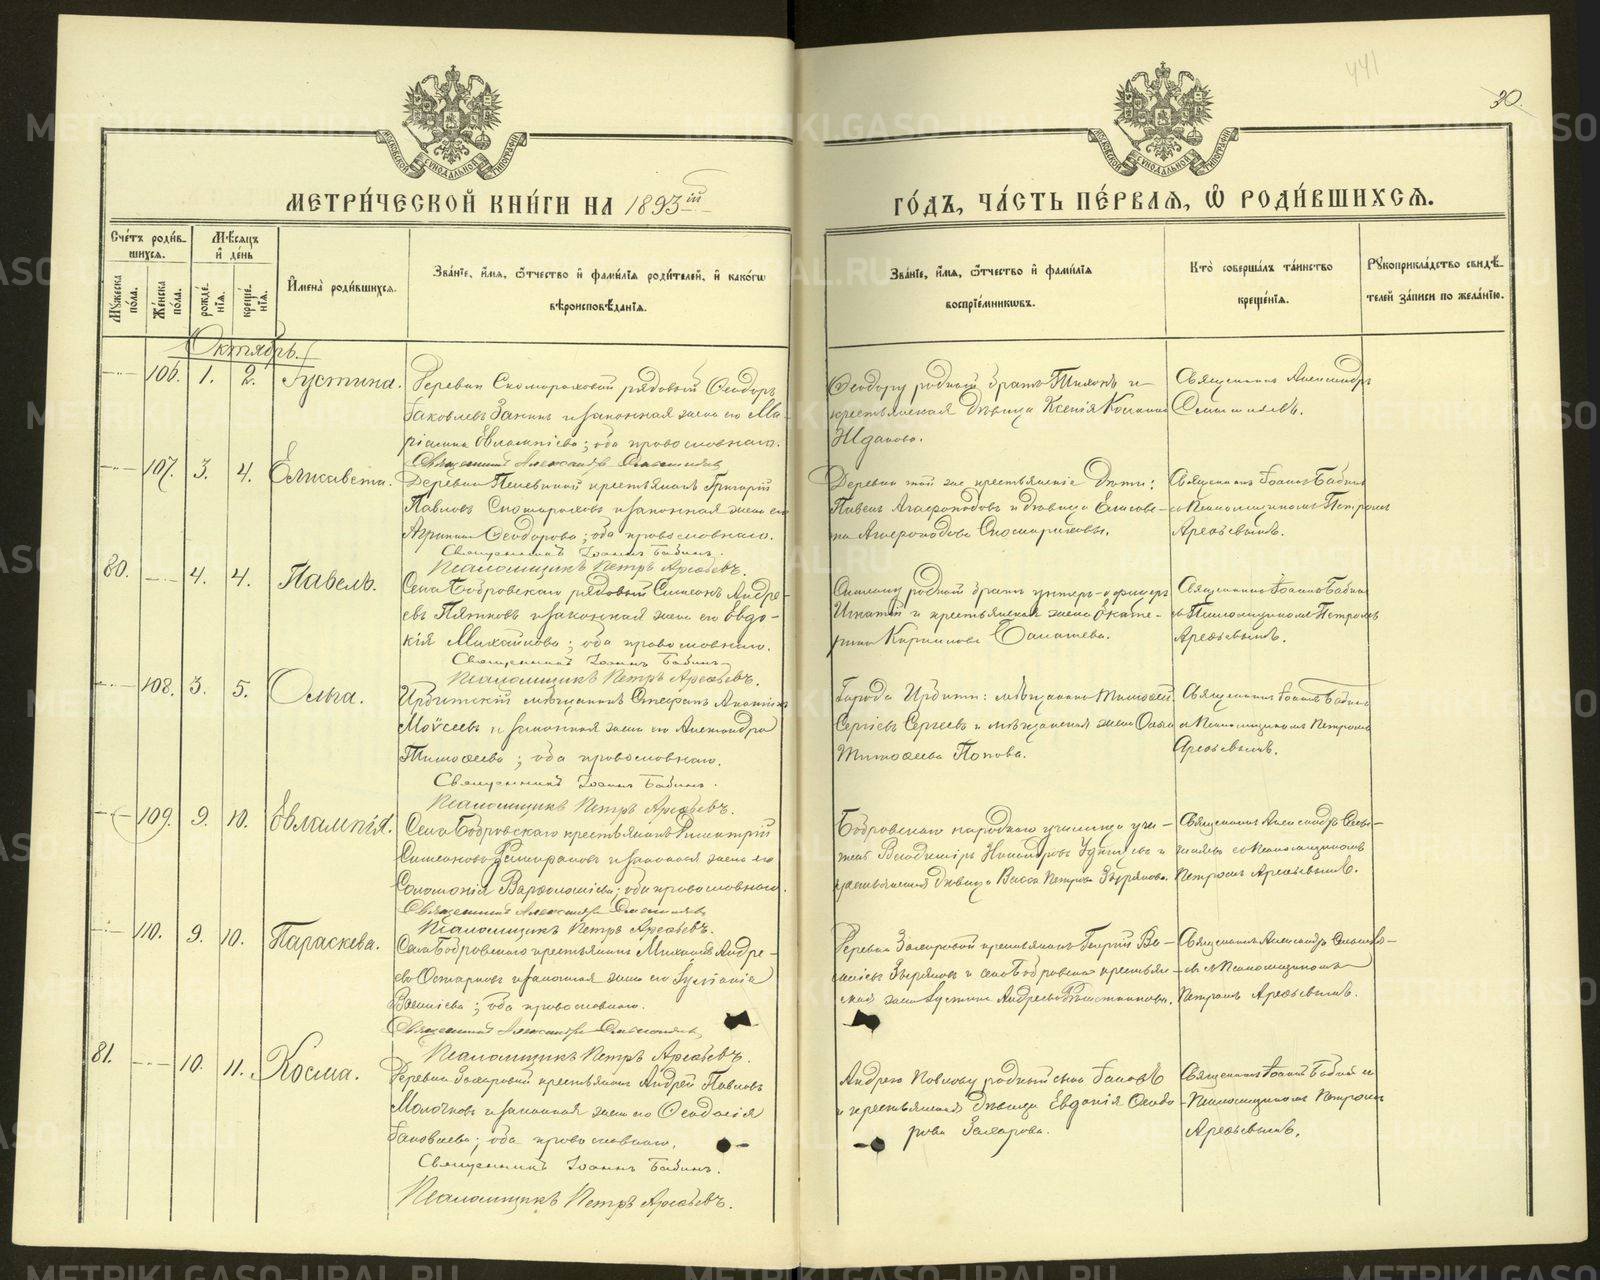 441
30.
МОСКОВСКОЙ СѴНОДАЛЬНОЙ ТИПОГРАФІИ
МОСКОВСКОЙ СѴНОДАЛЬНОЙ ТИПОГРАФІИ
МЕТРИ́ЧЕСКОЙ КНИ́ГИ НА 1893й
ГО́ДЪ, ЧА́СТЬ ПЕ́РВАЯ, Ѡ РОДИ́ВШИХСЯ.
Сче́тъ роди́в-
шихся.
Мꙋ́жеска по́ла.
Же́нска по́ла.
Мѣ́сяцъ
и де́нь
рожде́-
нія.
креще́-
нія.
Имена̀ роди́вшихся.
Зва́ніе, и́мя, ѻ́тчество и фами́лія роди́телей, и како́гѡ
вѣроисповѣ́данія.
Зва́ніе, и́мя, ѻ́тчество и фами́лія
воспрі́емникѡвъ.
Кто̀ соверша́лъ та́инство
креще́нія.
Рꙋкоприкла́дство свидѣ́-
телей за́писи по жела́нію.
Октябрь.
106. 1. 2. Іустина.
Деревни Скомороховой рядовый Ѳеодоръ
Іаковлевъ Занинъ и законная жена его Ма-
ріамна Евлампіева; оба православнаго.
Священникъ Александръ
Ѳеодору родный братъ Тихонъ и
крестьянская дѣвица Ксенія
Жданова.
Священникъ Александръ
107. 3. 4. Елисавета.
Деревни крестьянинъ Григорій
Павловъ Скомороховъ и законная жена его
Агрипина Ѳеодорова; оба православнаго.
Священникъ Іоаннъ Бабинъ.
Псаломщикъ Петръ Арефьевъ.
Деревни той же крестьянскіе дѣти:
Павелъ Агафоподовъ и дѣвица Елисаве-
та Агафоподова Скомороховы.
Священникъ Іоаннъ Бабинъ
съ Псаломщикомъ Петромъ
Арефьевымъ.
80. 4. 4. Павелъ.
Села Бобровскаго рядовый Симеонъ Андре-
евъ Пятковъ и законная жена его Евдо-
кія Михайлова; оба православнаго.
Священникъ Іоаннъ Бабинъ
Псаломщикъ Петръ Арефьевъ.
Симеону родный братъ унтеръ-офицеръ
Игнатій и крестьянская жена Екате-
рина Кирилова Балашева.
Священникъ Іоаннъ Бабинъ
съ Псаломщикомъ Петромъ
Арефьевымъ.
108. 3. 5. Ольга.
Ирбитскій мѣщанинъ Стефанъ
Моѵсеевъ и законная жена его Александра
Тимоѳеева; оба православнаго.
Священникъ Іоаннъ Бабинъ.
Псаломщикъ Петръ Арефьевъ.
Города Ирбити: мѣщанинъ Тимоѳей
Сергіевъ Сергеевъ и мѣщанская жена Ольга
Тимоѳеева Попова.
Священникъ Іоаннъ Бабинъ
съ Псаломщикомъ Петромъ
Арефьевымъ.
109. 9. 10. Евлампія.
Села Бобровскаго крестьянинъ Димитрій
Симеоновъ и законная жена его
Соломонія Варѳоломѣева; оба православнаго.
Священникъ Александръ
Псаломщикъ Петръ Арефьевъ.
Бобровскаго народнаго училища учи-
тель Владиміръ Никандровъ и
крестьянская дѣвица Васса Петрова Зырянова.
Священникъ Александръ
съ Псаломщикомъ
Петромъ Арефьевымъ.
110. 9. 10. Параскева.
Села Бобровскаго крестьянинъ Михаилъ Андре-
евъ и законная жена его Іуліанія
Василіева; оба православнаго.
Священникъ Александръ
Псаломщикъ Петръ Арефьевъ.
Деревни Захаровой крестьянинъ Георгій Ва-
силіевъ Зыряновъ и села Бобровскаго крестьян-
ская жена Іустина Андреева
Священникъ Александръ
съ Псаломщикомъ
Петромъ Арефьевымъ.
81. 10. 11. Косма.
Деревни Захаровой крестьянинъ Андрей Павловъ
Молочковъ и законная жена его Ѳеодосія
Іаковлева; оба православнаго.
Священникъ Іоаннъ Бабинъ.
Псаломщикъ Петръ Арефьевъ.
Андрею Павлову родный сынъ Іаковъ
и крестьянская дѣвица Евдокія Ѳеодо-
рова Захарова.
Священникъ Іоаннъ Бабинъ и
Псаломщикомъ Петромъ
Арефьевымъ.
METRIKI.GASO-URAL.RU